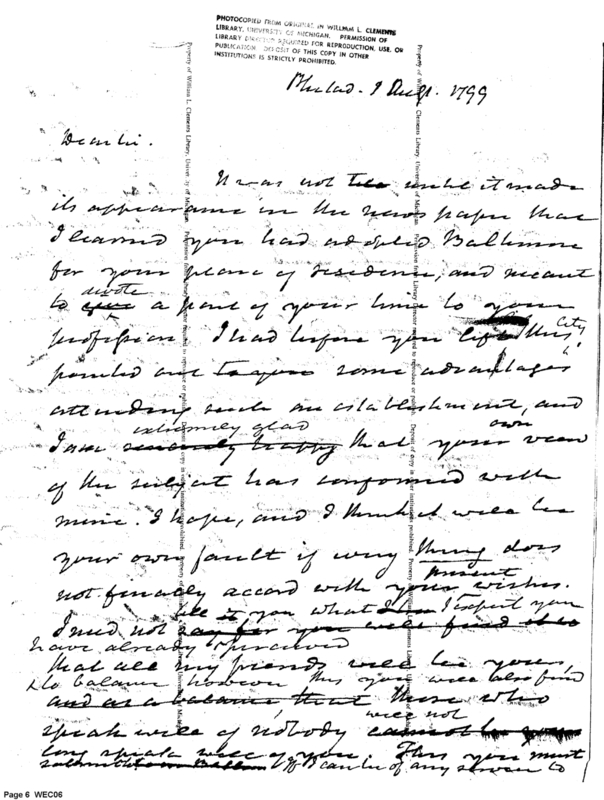 PHOTOCOPIED FROM ORIGINAL IN WILLIAM L. CLEMENTS
LIBRARY, UNIVERSITY OF MICHIGAN. PERMISSION OF
LIBRARY DIRECTOR REQUIRED FOR REPRODUCTION, USE, OR
PUBLICATION. DEPOSIT OF THIS COPY IN OTHER
INSTITUTIONS IS STRICTLY PROHIBITED.
Philad. 1 Augt. 1799
Dear Sir.
It was not until it made
its appearance in the news paper that
I learned you had adopted Baltimore
for your place of residence, and meant
devote
to a part of your time to your
profession. I had before you left this
City
pointed out to you some advantages
attending such an establishment, and
extremely glad own
I am sincerely happy that your view
of the subject has conformed with
mine. I hope, and I think it will be
your own fault if every thing does
present
not finally accord with your wishes.
tell it you what I expect you
I need not say for you will find also
have already perceived
that all my friends will be yours,
to balance however this you will also find
and as a balance that those who
will not
speak well of nobody cannot
long speak well of you. This you must
If I can be of any service to
Page 6 WEC06